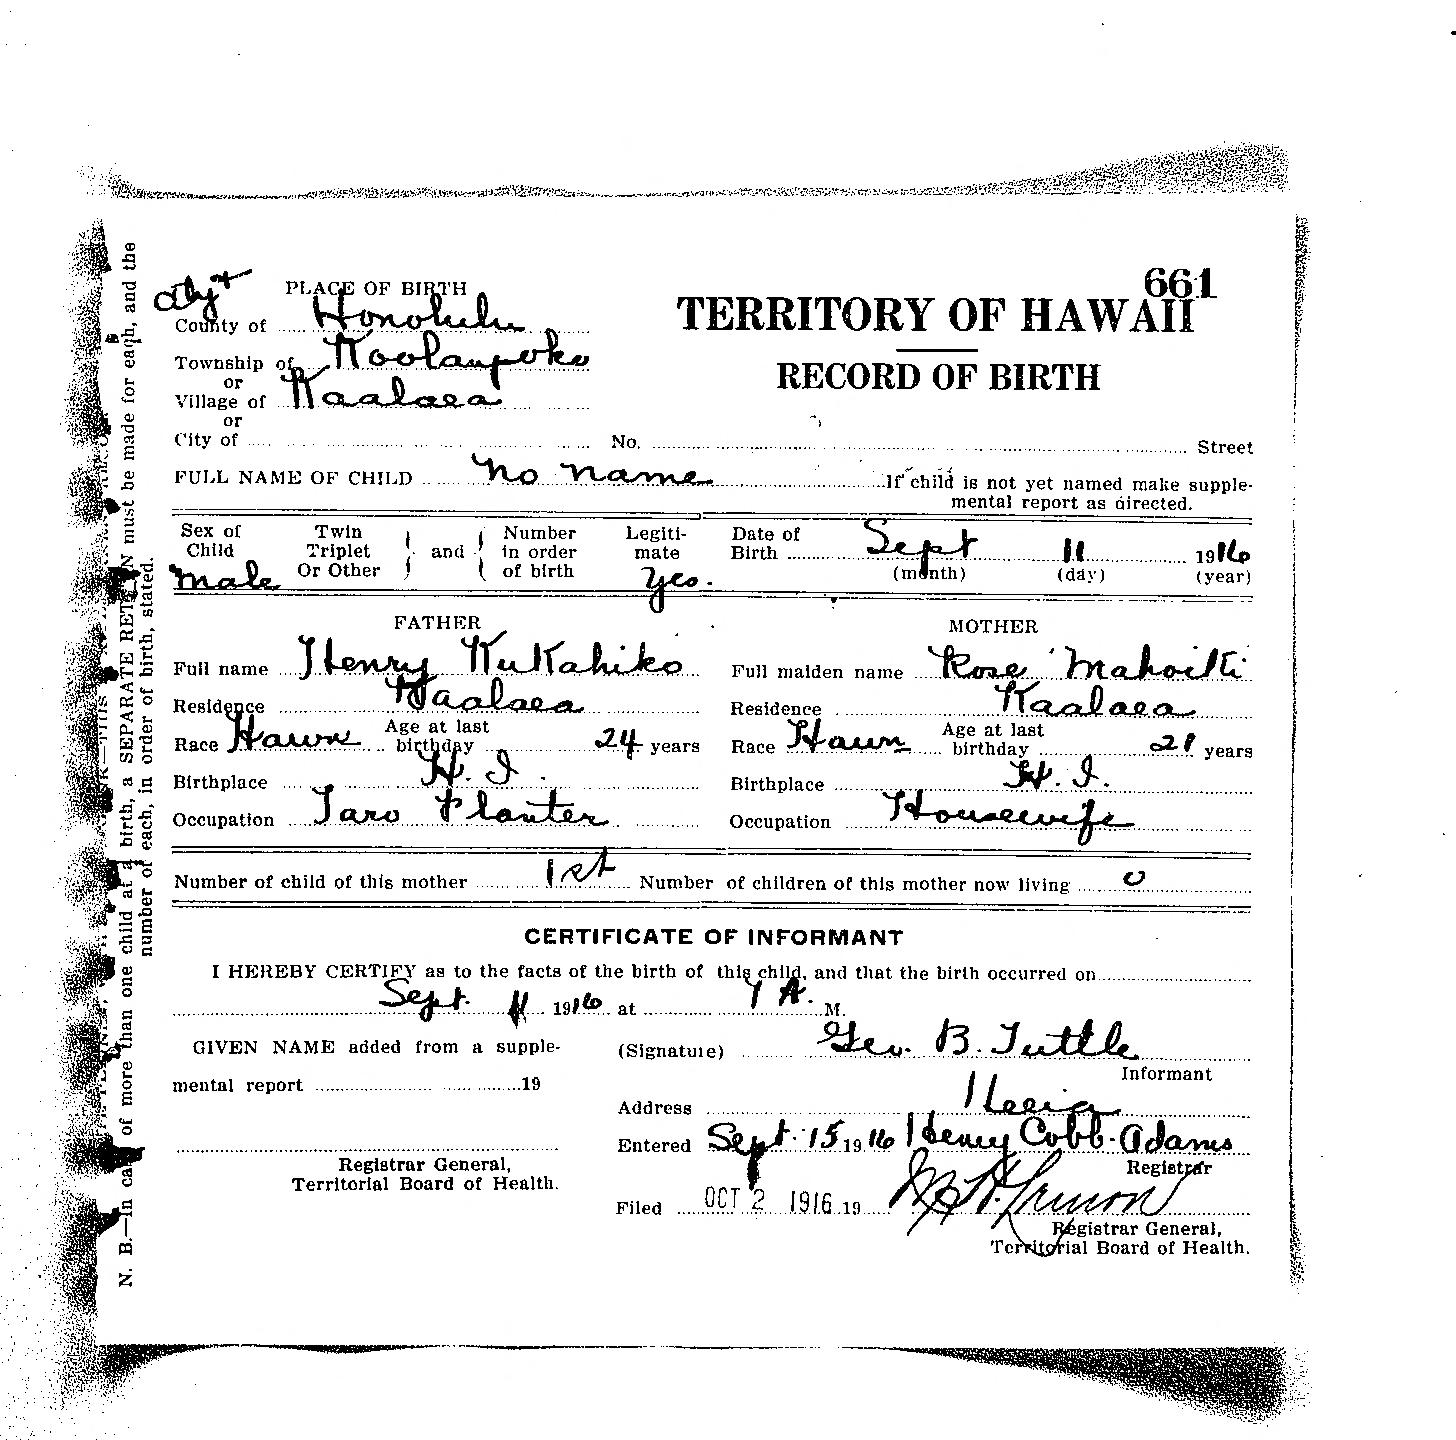 661
TERRITORY OF HAWAII
RECORD OF BIRTH
PLACE OF BIRTH
City &
County of Honolulu
Township of Koolaupoko
or
Village of Kaalaea
or
City of No. Street
FULL NAME OF CHILD no name If child is not yet named make supple-
mental report as directed.
Sex of Child male
Twin Triplet Or Other } and { Number in order of birth
Legiti-mate Yes.
Date of Birth Sept 11 1916
(month) (day) (year)
FATHER
Full name Henry Kukahiko
Residence Kaalaea
Race Hawn Age at last birthday 24 years
Birthplace H. I.
Occupation Taro Planter
MOTHER
Full maiden name Rose Mahoiki
Residence Kaalaea
Race Hawn Age at last birthday 21 years
Birthplace H. I.
Occupation Housewife
Number of child of this mother 1st Number of children of this mother now living 0
CERTIFICATE OF INFORMANT
I HEREBY CERTIFY as to the facts of the birth of this child, and that the birth occurred on
Sept. 11 1916 at A. M.
GIVEN NAME added from a supple-
mental report 19
Registrar General,
Territorial Board of Health.
(Signature) Geo. B. Tuttle
Informant
Address Heeia
Entered Sept. 15 1916 Henry Cobb-Adams
Registrar
Filed OCT 2 1916 19
Registrar General,
Territorial Board of Health.
N. B.—In case of more than one child at a birth, a SEPARATE RETURN must be made for each, and the
number of each, in order of birth, stated.